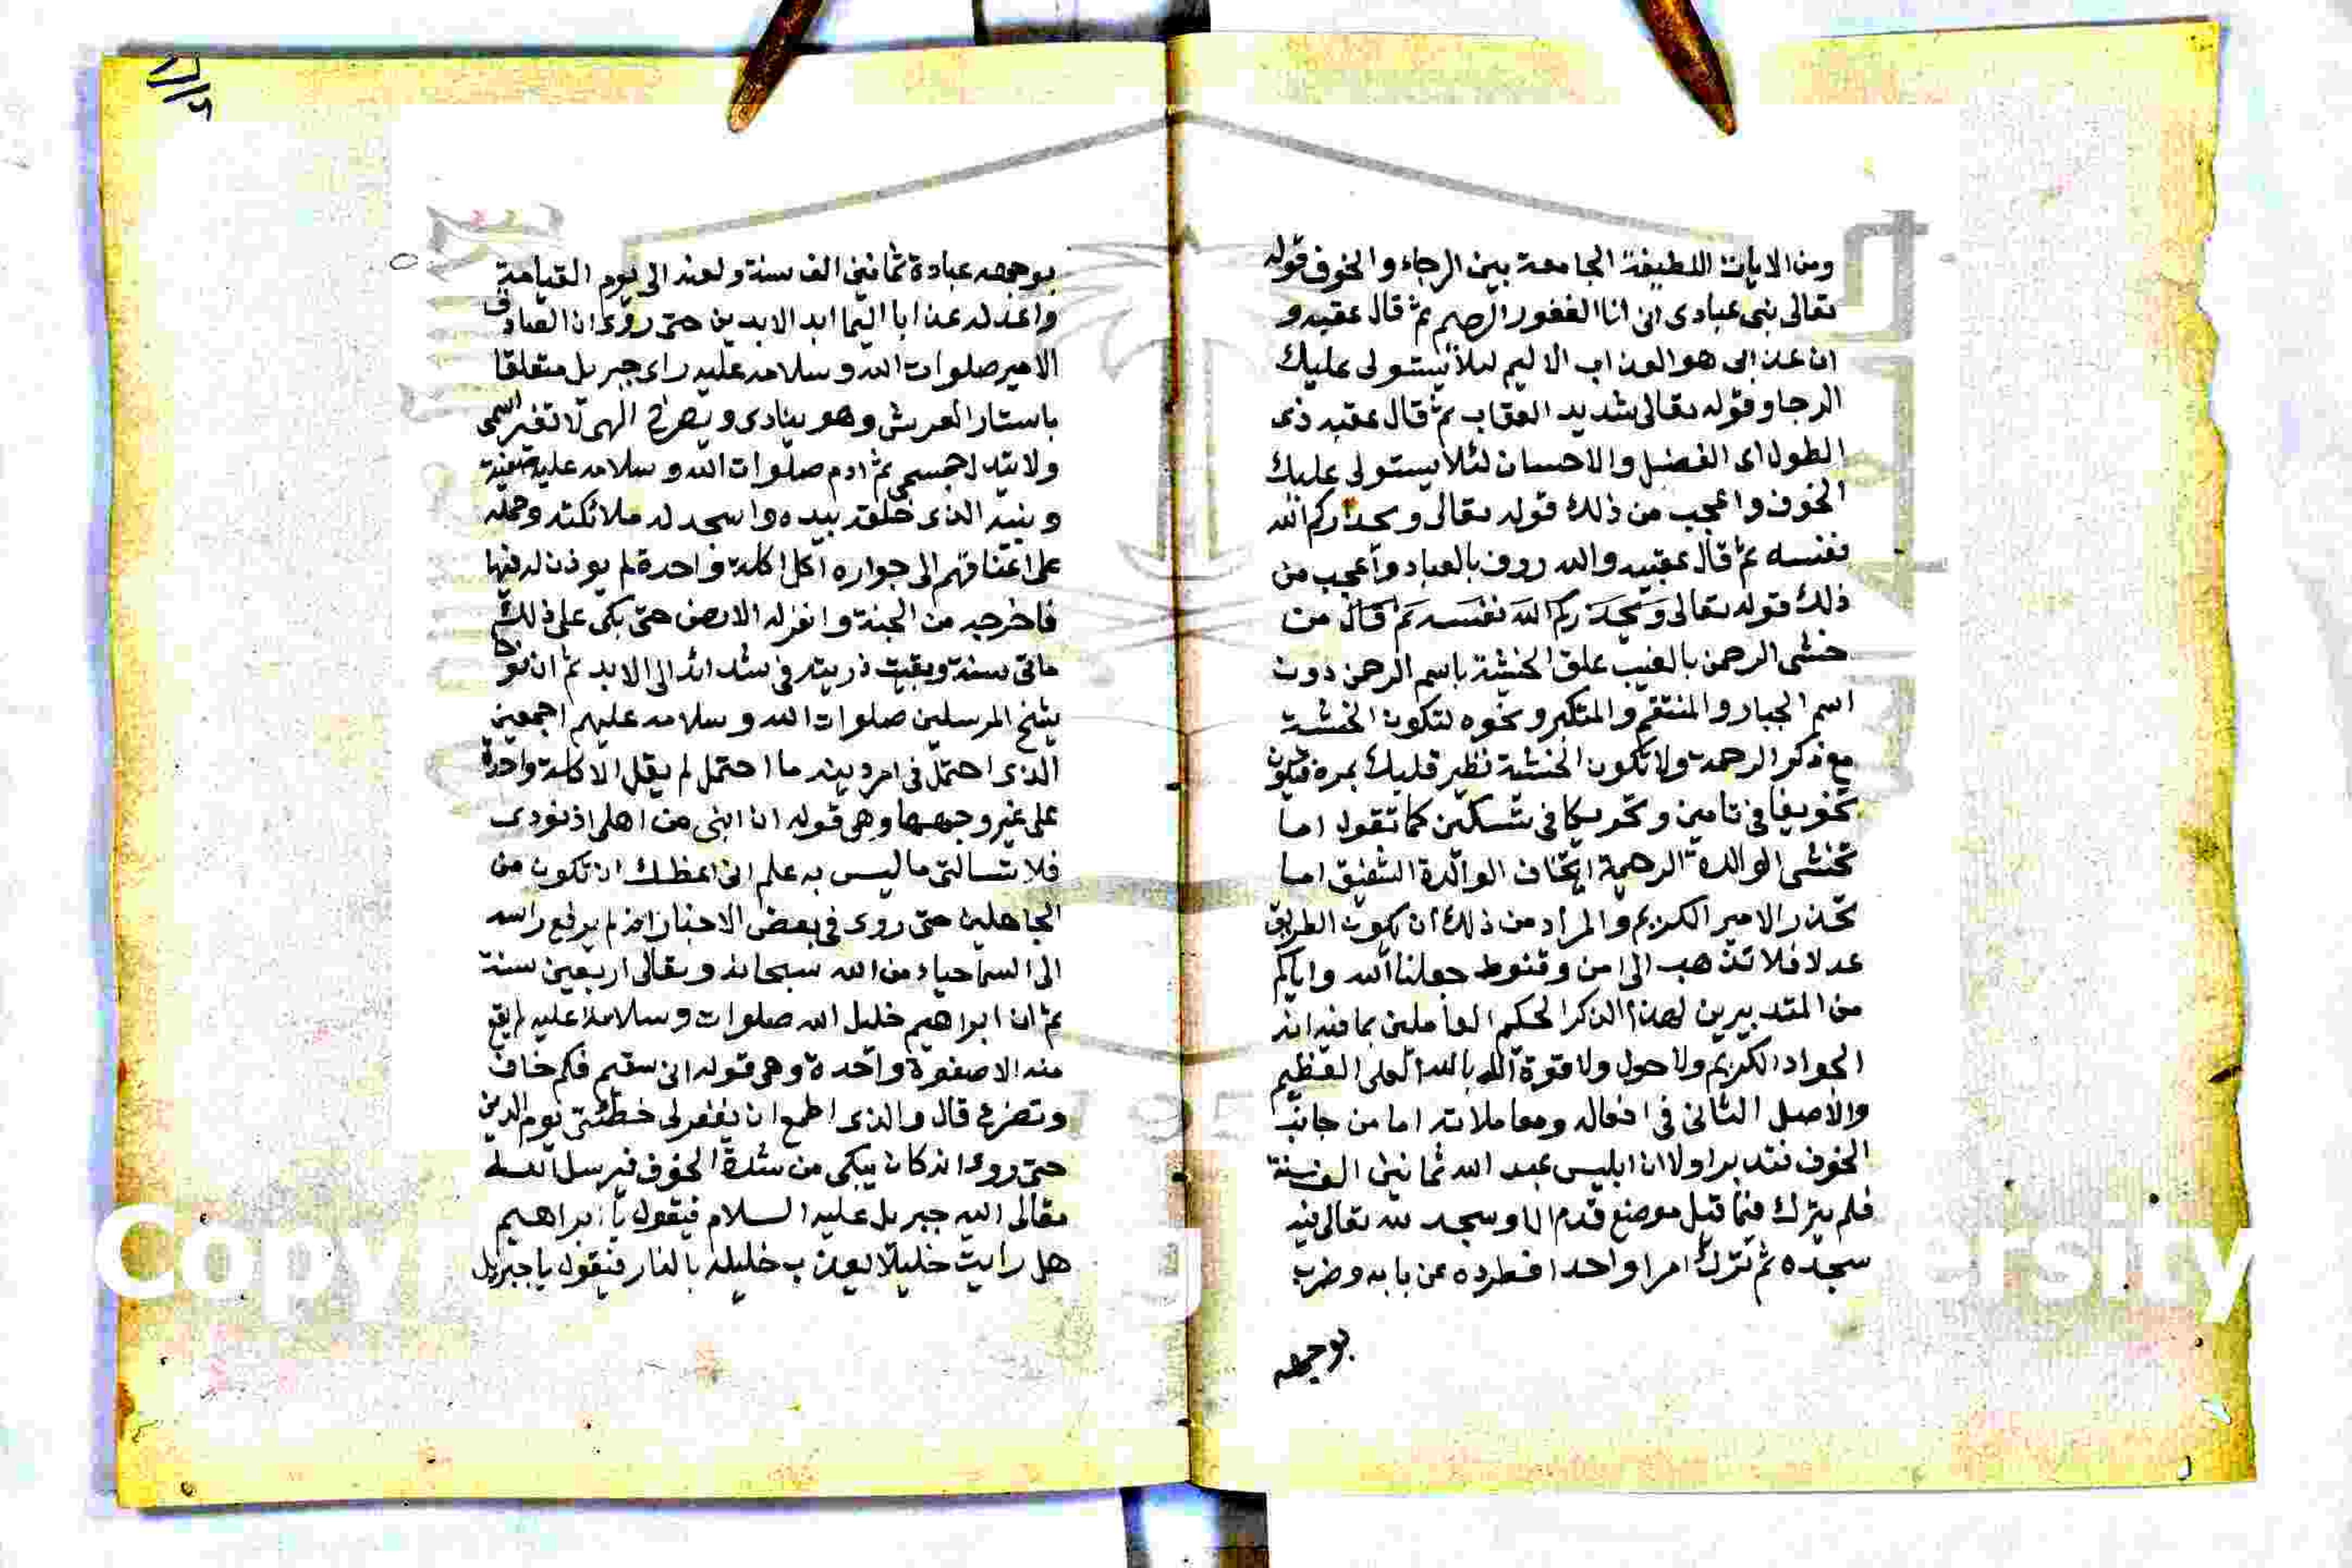 ومن الايات اللطيفة الجامعة بين الرجاء والخوف قوله
تعالى نبى عبادى انى انا الغفور الرحيم ثم قال عقيبه و
ان عذابى هو العذاب الاليم لئلا يستولى عليك
الرجا وقوله تعالى شديد العقاب ثم قال عقبه ذى
الطول اى الفضل والاحسان لئلا يستولى عليك
الخوف واعجب من ذلك قوله تعالى ويحذركم الله
نفسه ثم قال عقيبه والله روف بالعباد واعجب من
ذلك قوله تعالى وَيحَذركم اللَه نفسَه ثم قال من
خشى الرحمن بالغيب علق الخشية باسم الرحمن دون
اسم الجبار والمنتقم والمتكبر ونحوه لتكون الخشية
مع ذكر الرحمة ولا تكون الخشية تطير قلبك بمرة فيكون
تخويفا فى تامين وتحريكا فى تسكين كما تقول اما
تخشى الوالدة الرحيمة اما تخاف الوالدة الشفيق اما
تحذر الامير الكريم والمراد من ذلك ان يكون الطريق
عدلا فلا تذهب الى امن وقنوط جعلنا الله واياكم
من المتدبيرين لهذا الذكر الحكيم العاملين بما فيه انه
الجواد الكريم ولا حول ولا قوة الا بالله العلى العظيم
والاصل الثانى فى افعاله ومعاملاته اما من جانب
الخوف فتدبر اولا ان ابليس عبد الله ثمانين الف سنة
فلم يترك فيما قيل موضع قدم الا وسجد لله تعالى فيه
سجده ثم ترك امرا واحدا فطرده عن بابه وضرب
بوجهه
بوجهه عبادة ثمانين الف سنة ولعنه الى يوم القيامة
واعد له عذابا اليما ابد الابدين حتى روى ان الصادق
الامير صلوات الله وسلامه عليه راى جبريل متعلقا
باستار العرش وهو ينادى ويصرخ الهى لا تغير اسمى
ولا تبدل جسمى ثم ادم صلوات الله وسلامه عليه صفيه
ونبيه الذى خلقه بيده واسجد له ملائكته وحمله
على اعناقهم الى جواره اكل اكلة واحدة لم يوذن له فيها
فاخرجه من الجنة وانزله الارض حتى بكى على ذلك
مائتى سنة وبقيت ذريته فى شدائد الى الابد ثم ان نوحا
شيخ المرسلين صلوات الله وسلامه عليهم اجمعين
الذى احتمل فى امر دينه ما احتمل لم يقل الا كلمة واحدة
على غير وجهها وهى قوله ان ابنى من اهلى اذ نودى
فلا تسالنى ما ليس به علم انى اعظك ان تكون من
الجاهلين حتى روى فى بعض الاخبار انه لم يرفع راسه
الى السما حياء من الله سبحانه وتعالى اربعين سنة
ثم ان ابراهيم خليل الله صلوات وسلامه عليه لم يقع
منه الا صفوة واحدة وهى قوله انى سقيم فكم خاف
وتضرع قال والذى اطمع ان يغفر لى خطئتى يوم الدين
حتى روى انه كان يبكى من شدة الخوف فيرسل الله
تعالى اليه جبريل عليه السلام فيقول يا ابراهيم
هل رايت خليلا يعذب خليله بالنار فيقول يا جبريل